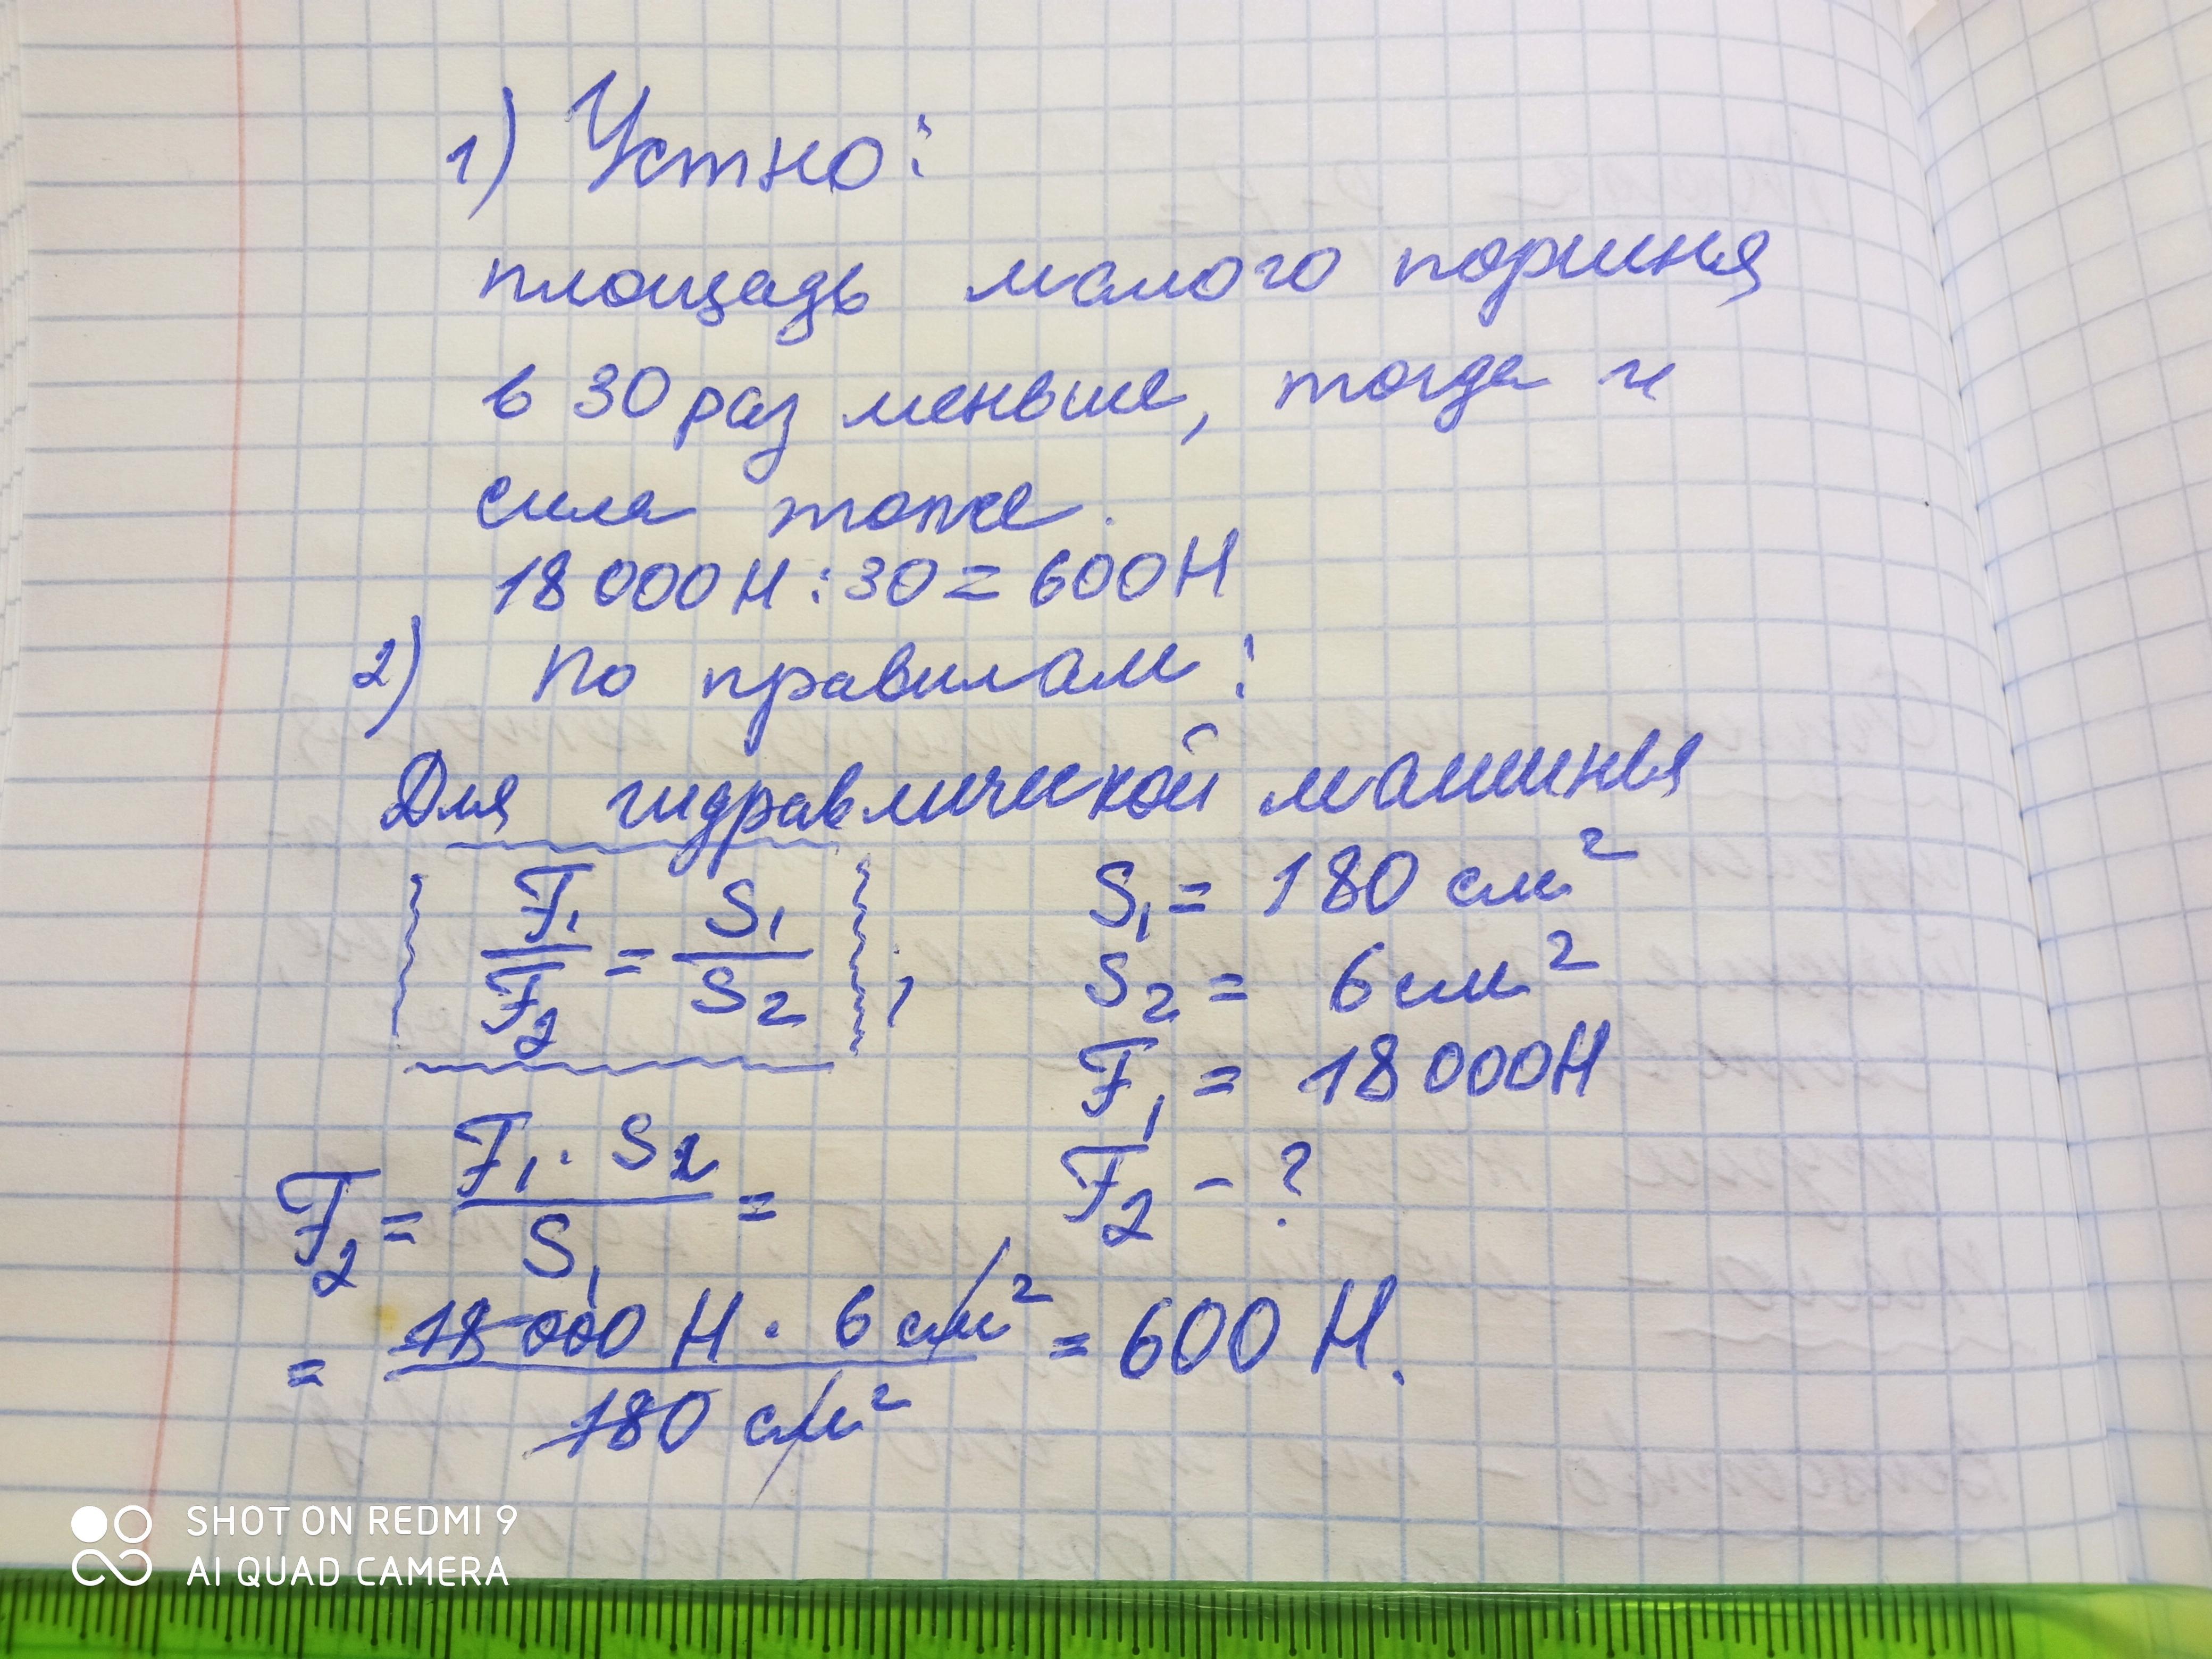 1) Устно:
площадь малого поршня
в 30 раз меньше, тогда и
сила тоже.
18 000 Н : 30 = 600 Н
2) По правилам:
Для гидравлической машины
F₁/F₂ = S₁/S₂ ;
S₁ = 180 см²
S₂ = 6 см²
F₁ = 18 000 Н
F₂ - ?
F₂ = F₁ · S₂ / S₁ =
= 18 000 Н · 6 см² / 180 см² = 600 Н.
SHOT ON REDMI 9
AI QUAD CAMERA